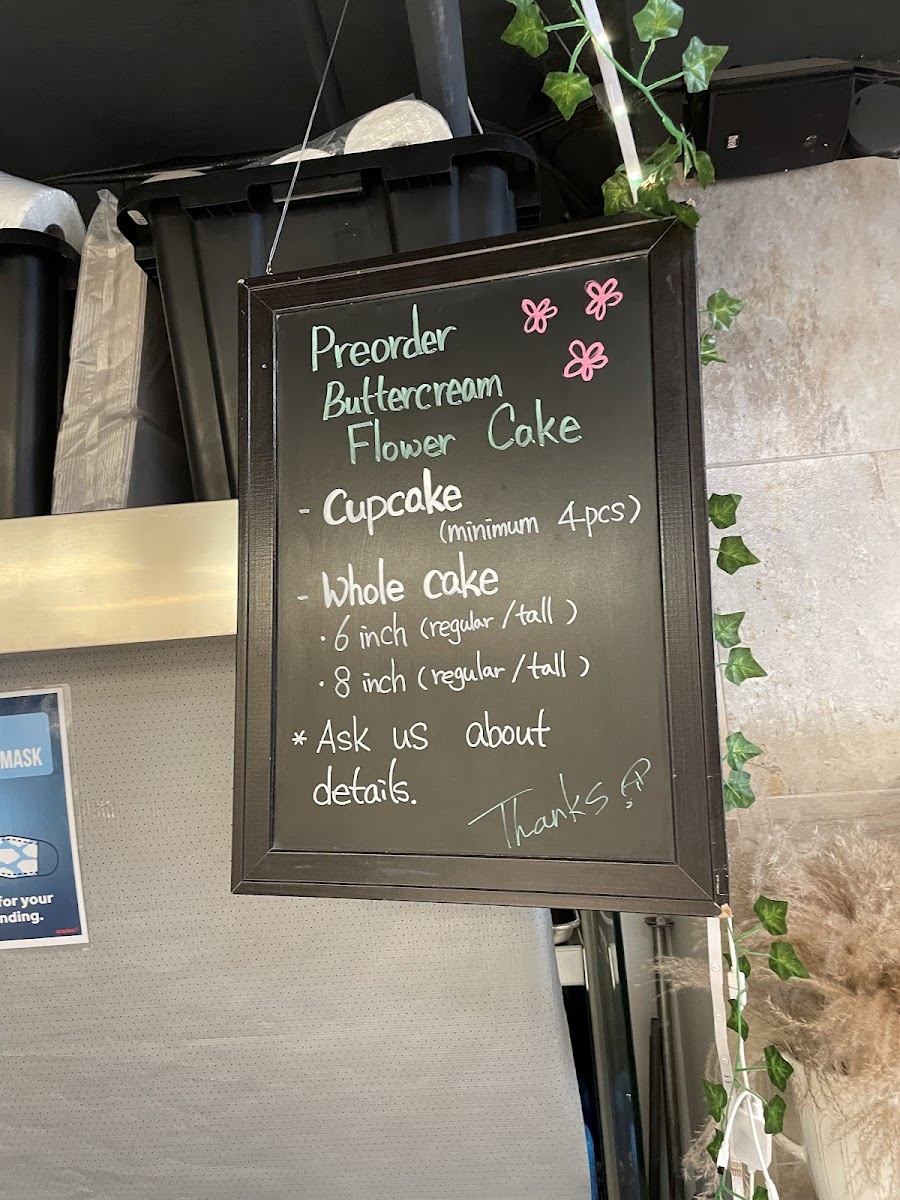 Preorder
Buttercream
Flower Cake
- Cupcake
(minimum 4pcs)
- Whole cake
· 6 inch (regular/tall)
· 8 inch (regular/tall)
* Ask us about
details.
Thanks
MASK
for your
nding.